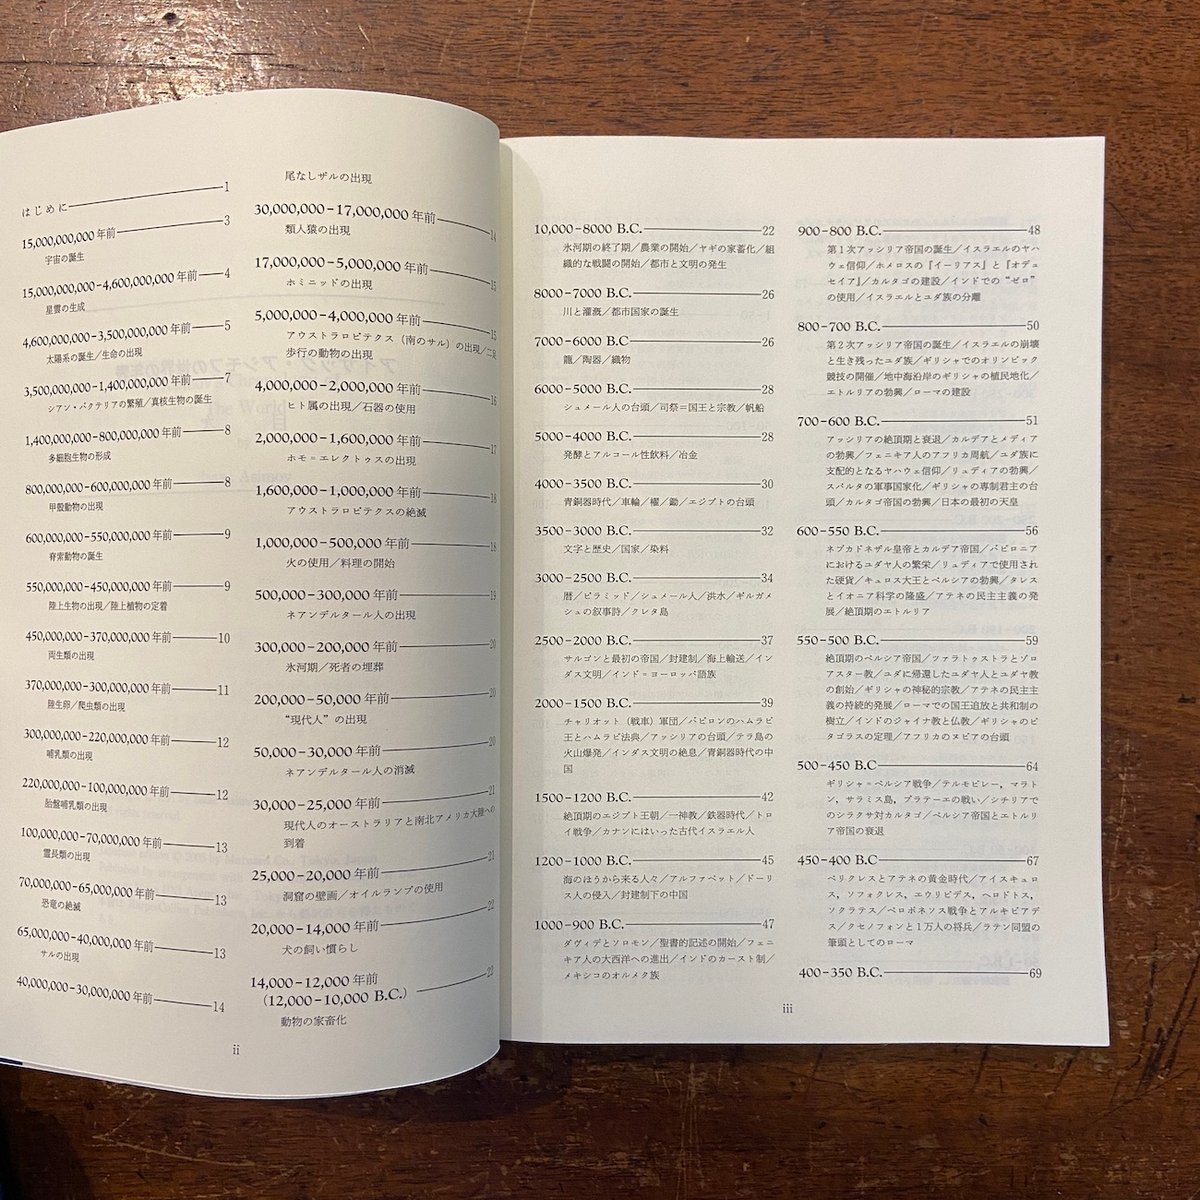 はじめに 1
15,000,000,000 年前 3
宇宙の誕生
15,000,000,000-4,600,000,000 年前 4
星雲の生成
4,600,000,000-3,500,000,000 年前 5
太陽系の誕生/生命の出現
3,500,000,000-1,400,000,000 年前 7
シアン・バクテリアの繁殖/真核生物の誕生
1,400,000,000-800,000,000 年前 8
多細胞生物の形成
800,000,000-600,000,000 年前 8
甲殻動物の出現
600,000,000-550,000,000 年前 9
脊索動物の誕生
550,000,000-450,000,000 年前 9
陸上生物の出現/陸上植物の定着
450,000,000-370,000,000 年前 10
両生類の出現
370,000,000-300,000,000 年前 11
陸生卵/爬虫類の出現
300,000,000-220,000,000 年前 12
哺乳類の出現
220,000,000-100,000,000 年前 12
胎盤哺乳類の出現
100,000,000-70,000,000 年前 13
霊長類の出現
70,000,000-65,000,000 年前 13
恐竜の絶滅
65,000,000-40,000,000 年前 13
サルの出現
40,000,000-30,000,000 年前 14
尾なしザルの出現
30,000,000-17,000,000 年前 14
類人猿の出現
17,000,000-5,000,000 年前 15
ホミニッドの出現
5,000,000-4,000,000 年前 15
アウストラロピテクス(南のサル)の出現/二足
歩行の動物の出現
4,000,000-2,000,000 年前 16
ヒト属の出現/石器の使用
2,000,000-1,600,000 年前 17
ホモ=エレクトゥスの出現
1,600,000-1,000,000 年前 18
アウストラロピテクスの絶滅
1,000,000-500,000 年前 18
火の使用/料理の開始
500,000-300,000 年前 19
ネアンデルタール人の出現
300,000-200,000 年前 20
氷河期/死者の埋葬
200,000-50,000 年前 20
“現代人”の出現
50,000-30,000 年前 20
ネアンデルタール人の消滅
30,000-25,000 年前 21
現代人のオーストラリアと南北アメリカ大陸への
到着
25,000-20,000 年前 21
洞窟の壁画/オイルランプの使用
20,000-14,000 年前 22
犬の飼い慣らし
14,000-12,000 年前
(12,000-10,000 B.C.) 22
動物の家畜化
ii
10,000-8000 B.C. 22
氷河期の終了期/農業の開始/ヤギの家畜化/組
織的な戦闘の開始/都市と文明の発生
8000-7000 B.C. 26
川と灌漑/都市国家の誕生
7000-6000 B.C. 26
籠/陶器/織物
6000-5000 B.C. 28
シュメール人の台頭/司祭=国王と宗教/帆船
5000-4000 B.C. 28
発酵とアルコール性飲料/冶金
4000-3500 B.C. 30
青銅器時代/車輪/櫂/鋤/エジプトの台頭
3500-3000 B.C. 32
文字と歴史/国家/染料
3000-2500 B.C. 34
暦/ピラミッド/シュメール人/洪水/ギルガメ
シュの叙事詩/クレタ島
2500-2000 B.C. 37
サルゴンと最初の帝国/封建制/海上輸送/イン
ダス文明/インド=ヨーロッパ語族
2000-1500 B.C. 39
チャリオット(戦車)軍団/バビロンのハムラビ
王とハムラビ法典/アッシリアの台頭/テラ島の
火山爆発/インダス文明の絶息/青銅器時代の中
国
1500-1200 B.C. 42
絶頂期のエジプト王朝/一神教/鉄器時代/トロ
イ戦争/カナンにはいった古代イスラエル人
1200-1000 B.C. 45
海のほうから来る人々/アルファベット/ドーリ
ス人の侵入/封建制下の中国
1000-900 B.C. 47
ダヴィデとソロモン/聖書的記述の開始/フェニ
キア人の大西洋への進出/インドのカースト制/
メキシコのオルメカ族
900-800 B.C. 48
第1次アッシリア帝国の誕生/イスラエルのヤハ
ウェ信仰/ホメロスの『イーリアス』と『オデュ
セイア』/カルタゴの建設/インドでの“ゼロ”
の使用/イスラエルとユダ族の分離
800-700 B.C. 50
第2次アッシリア帝国の誕生/イスラエルの崩壊
と生き残ったユダ族/ギリシャでのオリンピック
競技の開催/地中海沿岸のギリシャの植民地化/
エトルリアの勃興/ローマの建設
700-600 B.C. 51
アッシリアの絶頂期と衰退/カルデアとメディア
の勃興/フェニキア人のアフリカ周航/ユダ族に
支配的となるヤハウェ信仰/リュディアの勃興/
スパルタの軍事国家化/ギリシャの専制君主の台
頭/カルタゴ帝国の勃興/日本の最初の天皇
600-550 B.C. 56
ネブカドネザル皇帝とカルデア帝国/バビロニア
におけるユダヤ人の繁栄/リュディアで使用され
た硬貨/キュロス大王とペルシアの勃興/タレス
とイオニア科学の隆盛/アテネの民主主義の発
展/絶頂期のエトルリア
550-500 B.C. 59
絶頂期のペルシア帝国/ツァラトゥストラとゾロ
アスター教/ユダに帰還したユダヤ人とユダヤ教
の創始/ギリシャの神秘的宗教/アテネの民主主
義の持続的発展/ローマでの国王追放と共和制の
樹立/インドのジャイナ教と仏教/ギリシャのピ
タゴラスの定理/アフリカのヌビアの台頭
500-450 B.C 64
ギリシャ=ペルシア戦争/テルモピレー,マラト
ン,サラミス島,プラテーエの戦い/シチリアで
のシラクサ対カルタゴ/ペルシア帝国とエトルリ
ア帝国の衰退
450-400 B.C 67
ペリクレスとアテネの黄金時代/アイスキュロ
ス,ソフォクレス,エウリピデス,ヘロドトス,
ソクラテス/ペロポネソス戦争とアルキビアデ
ス/クセノフォンと1万人の将兵/ラテン同盟の
筆頭としてのローマ
400-350 B.C. 69
iii